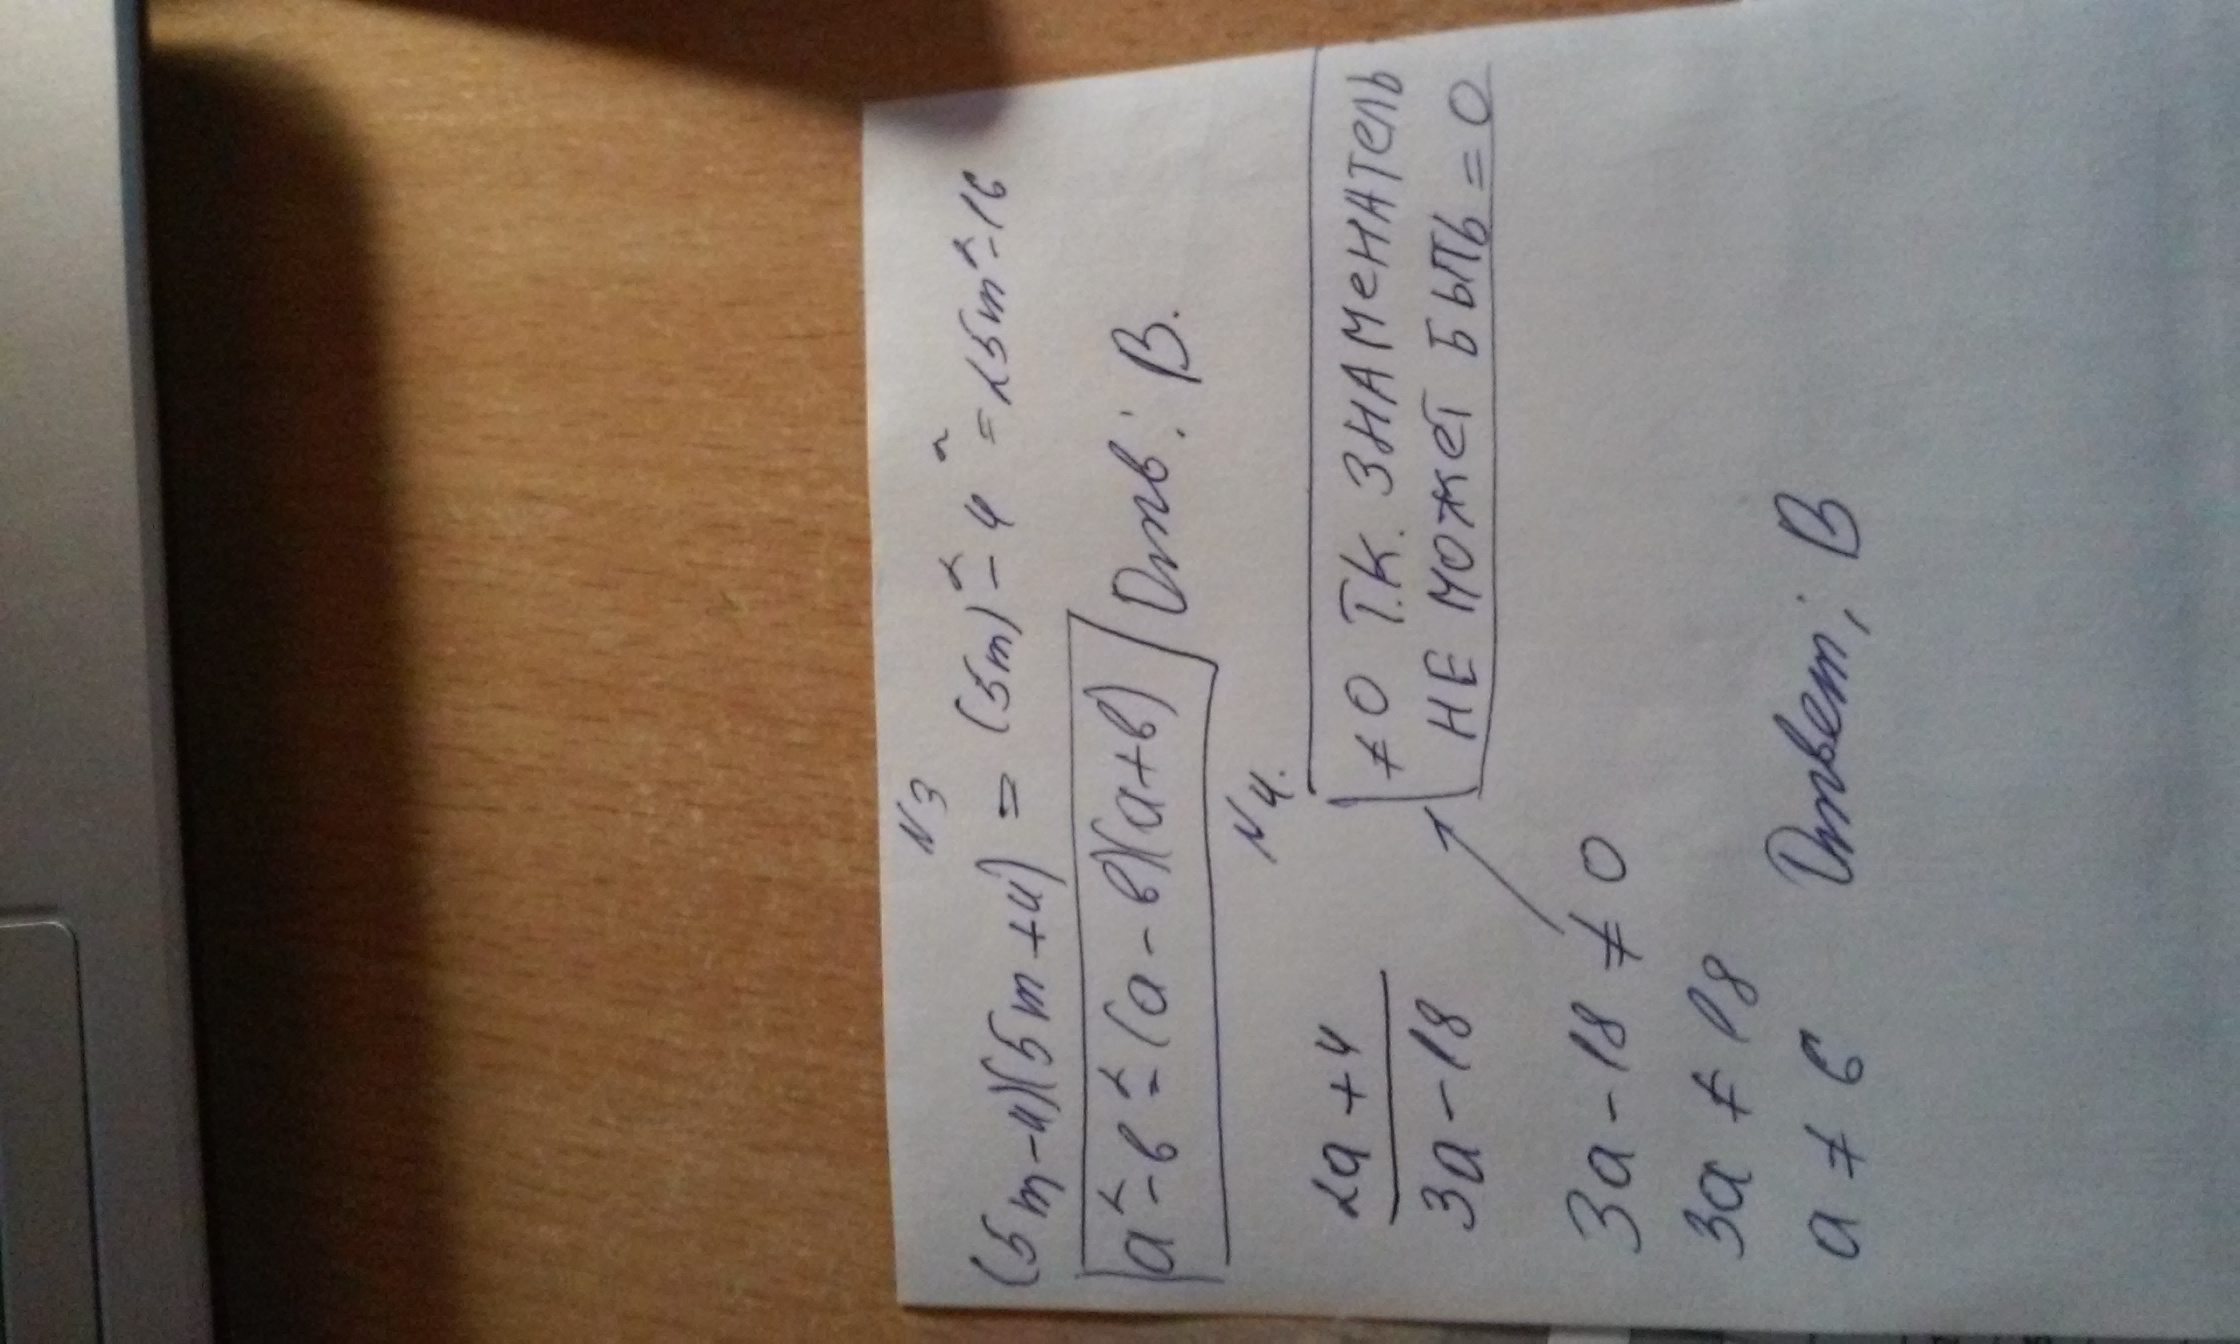 N3
(5m-4)(5m+4) = (5m)²-4² = 25m²-16
a²-b²=(a-b)(a+b) Отв: В.
N4.
2a+4
3a-18
≠0 Т.К. ЗНАМеНАТеЛЬ
НЕ МОЖЕТ БЫТЬ =0
3a-18≠0
3a≠18
a≠6 Ответ: В